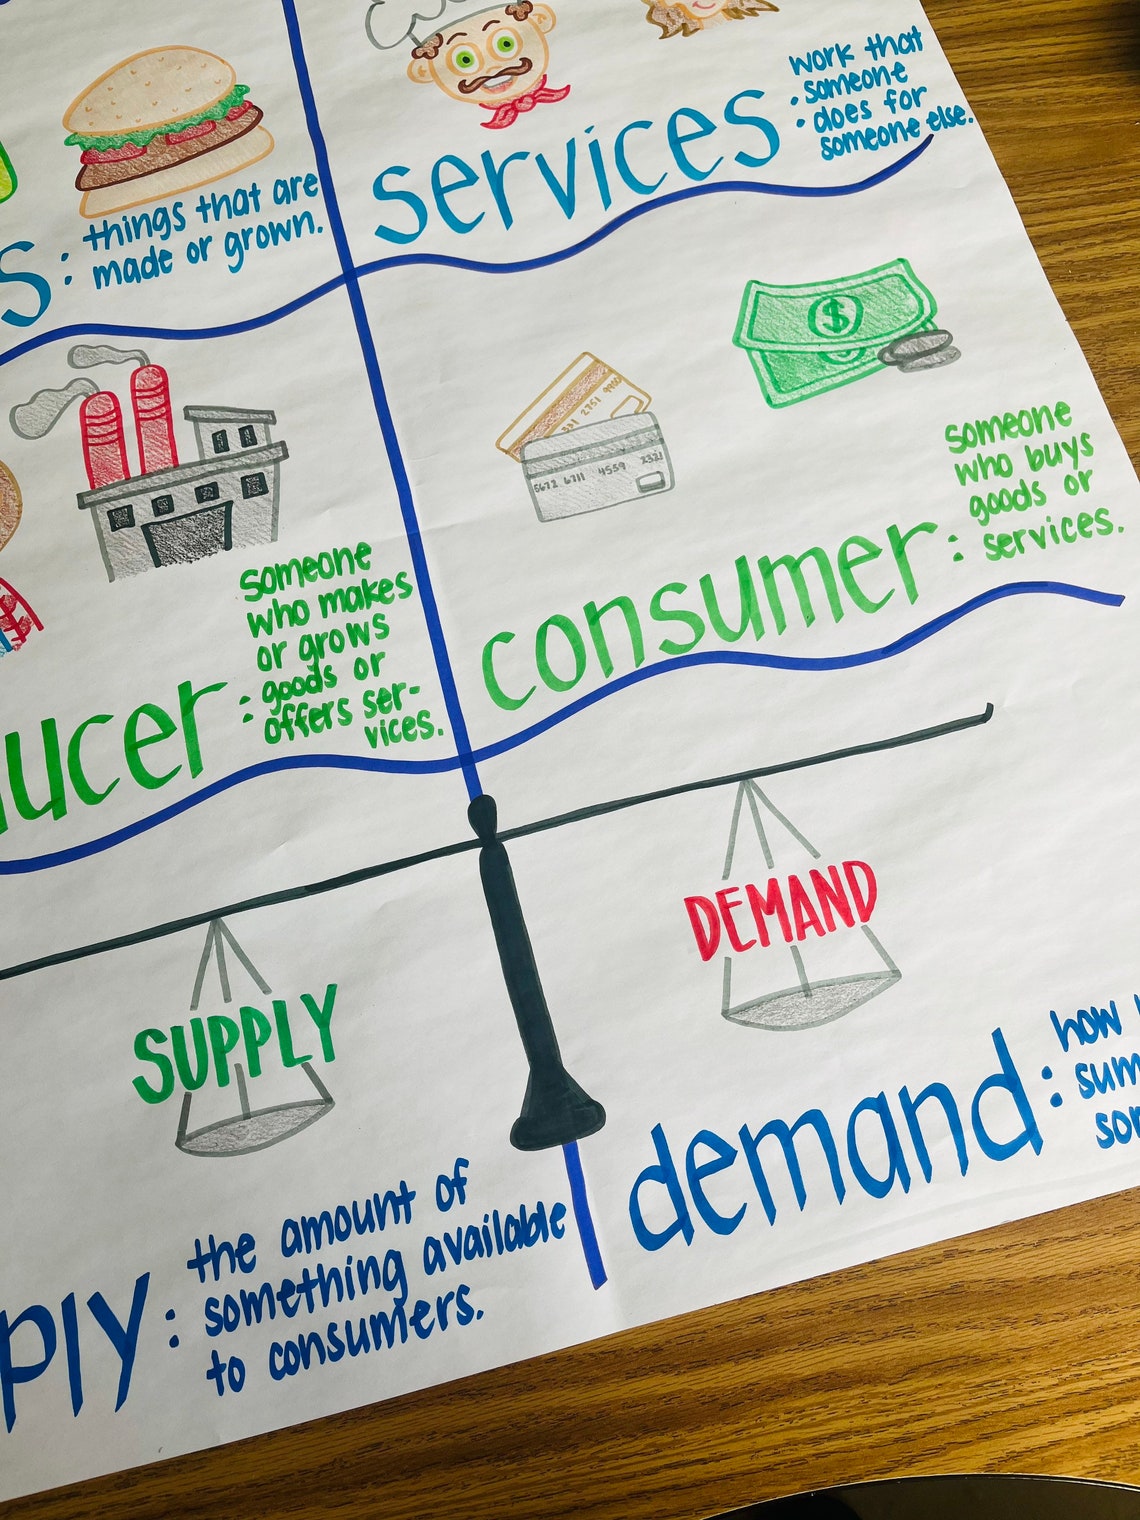 work that
someone
does for
someone else.
services:
things that are
made or grown.
s:
$
2751 9900
5672 6711 4559 2321
someone
who buys
goods or
services.
consumer:
someone
who makes
or grows
goods or
offers ser-
vices.
ucer:
DEMAND
SUPPLY
how
demand:
the amount of
something available
to consumers.
ply: